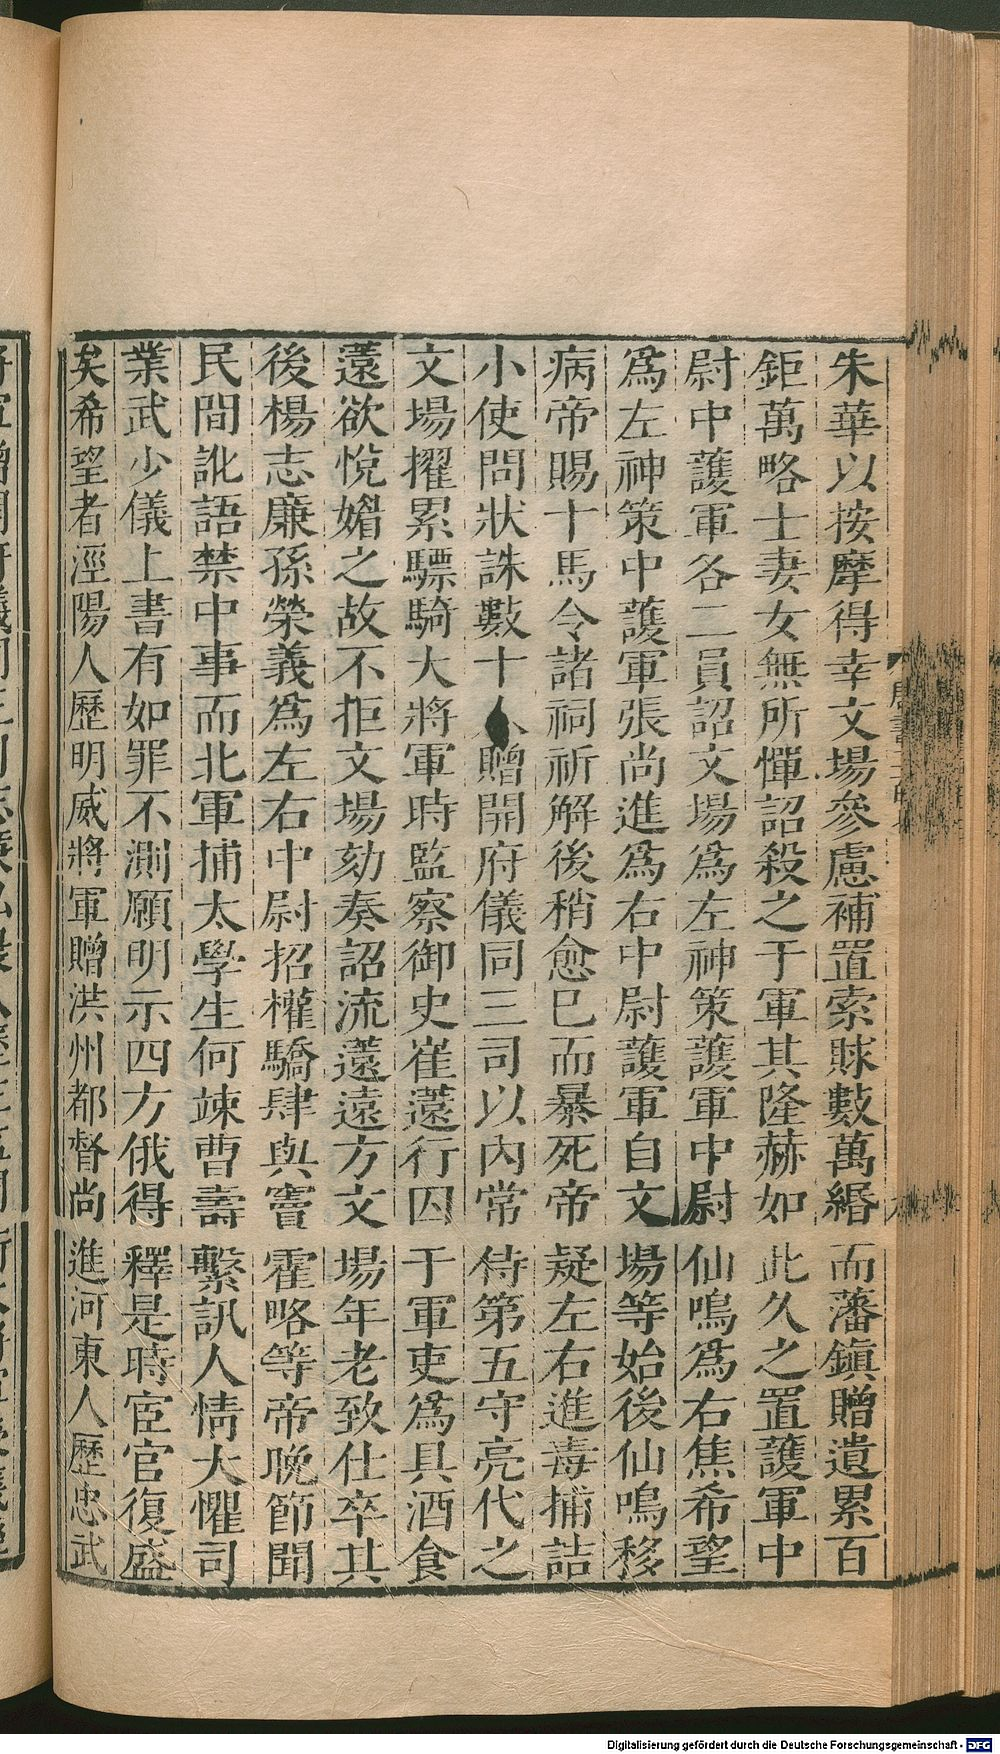 朱華以按摩得幸文場參慮補置索賕數萬緡而藩鎮贈遺累百
鉅萬略士妻女無所憚詔殺之于軍其隆赫如此久之置護軍中
尉中護軍各二員詔文場爲左神策護軍中尉仙鳴爲右焦希望
爲左神策中護軍張尚進爲右中尉護軍自文場等始後仙鳴移
病帝賜十馬令諸祠祈解後稍愈巳而暴死帝疑左右進毒捕詰
小使問狀誅數十人贈開府儀同三司以內常侍第五守亮代之
文場擢累驃騎大將軍時監察御史崔薳行囚于軍吏爲具酒食
薳欲悅媚之故不拒文場劾奏詔流薳遠方文場年老致仕卒其
後楊志廉孫榮義爲左右中尉招權驕肆與竇霍略等帝晚節聞
民間訛語禁中事而北軍捕太學生何竦曹壽繫訊人情大懼司
業武少儀上書有如罪不測願明示四方俄得釋是時宦官復盛
矣希望者涇陽人歷明威將軍贈洪州都督尚進河東人歷忠武
Digitalisierung gefördert durch die Deutsche Forschungsgemeinschaft - DFG